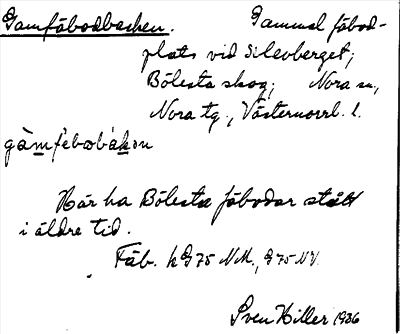 Gamfäbodbacken. Gammal fäbod-
plats vid Silevberget;
Bölesta skog; Nora sn.,
Nora tg., Västernorrl. l.
gàmfèbobákən
Här ha Bölesta fäbodar stått
i äldre tid.
Fäb. h G75 NM., G75 NV.
Sven Hiller 1936